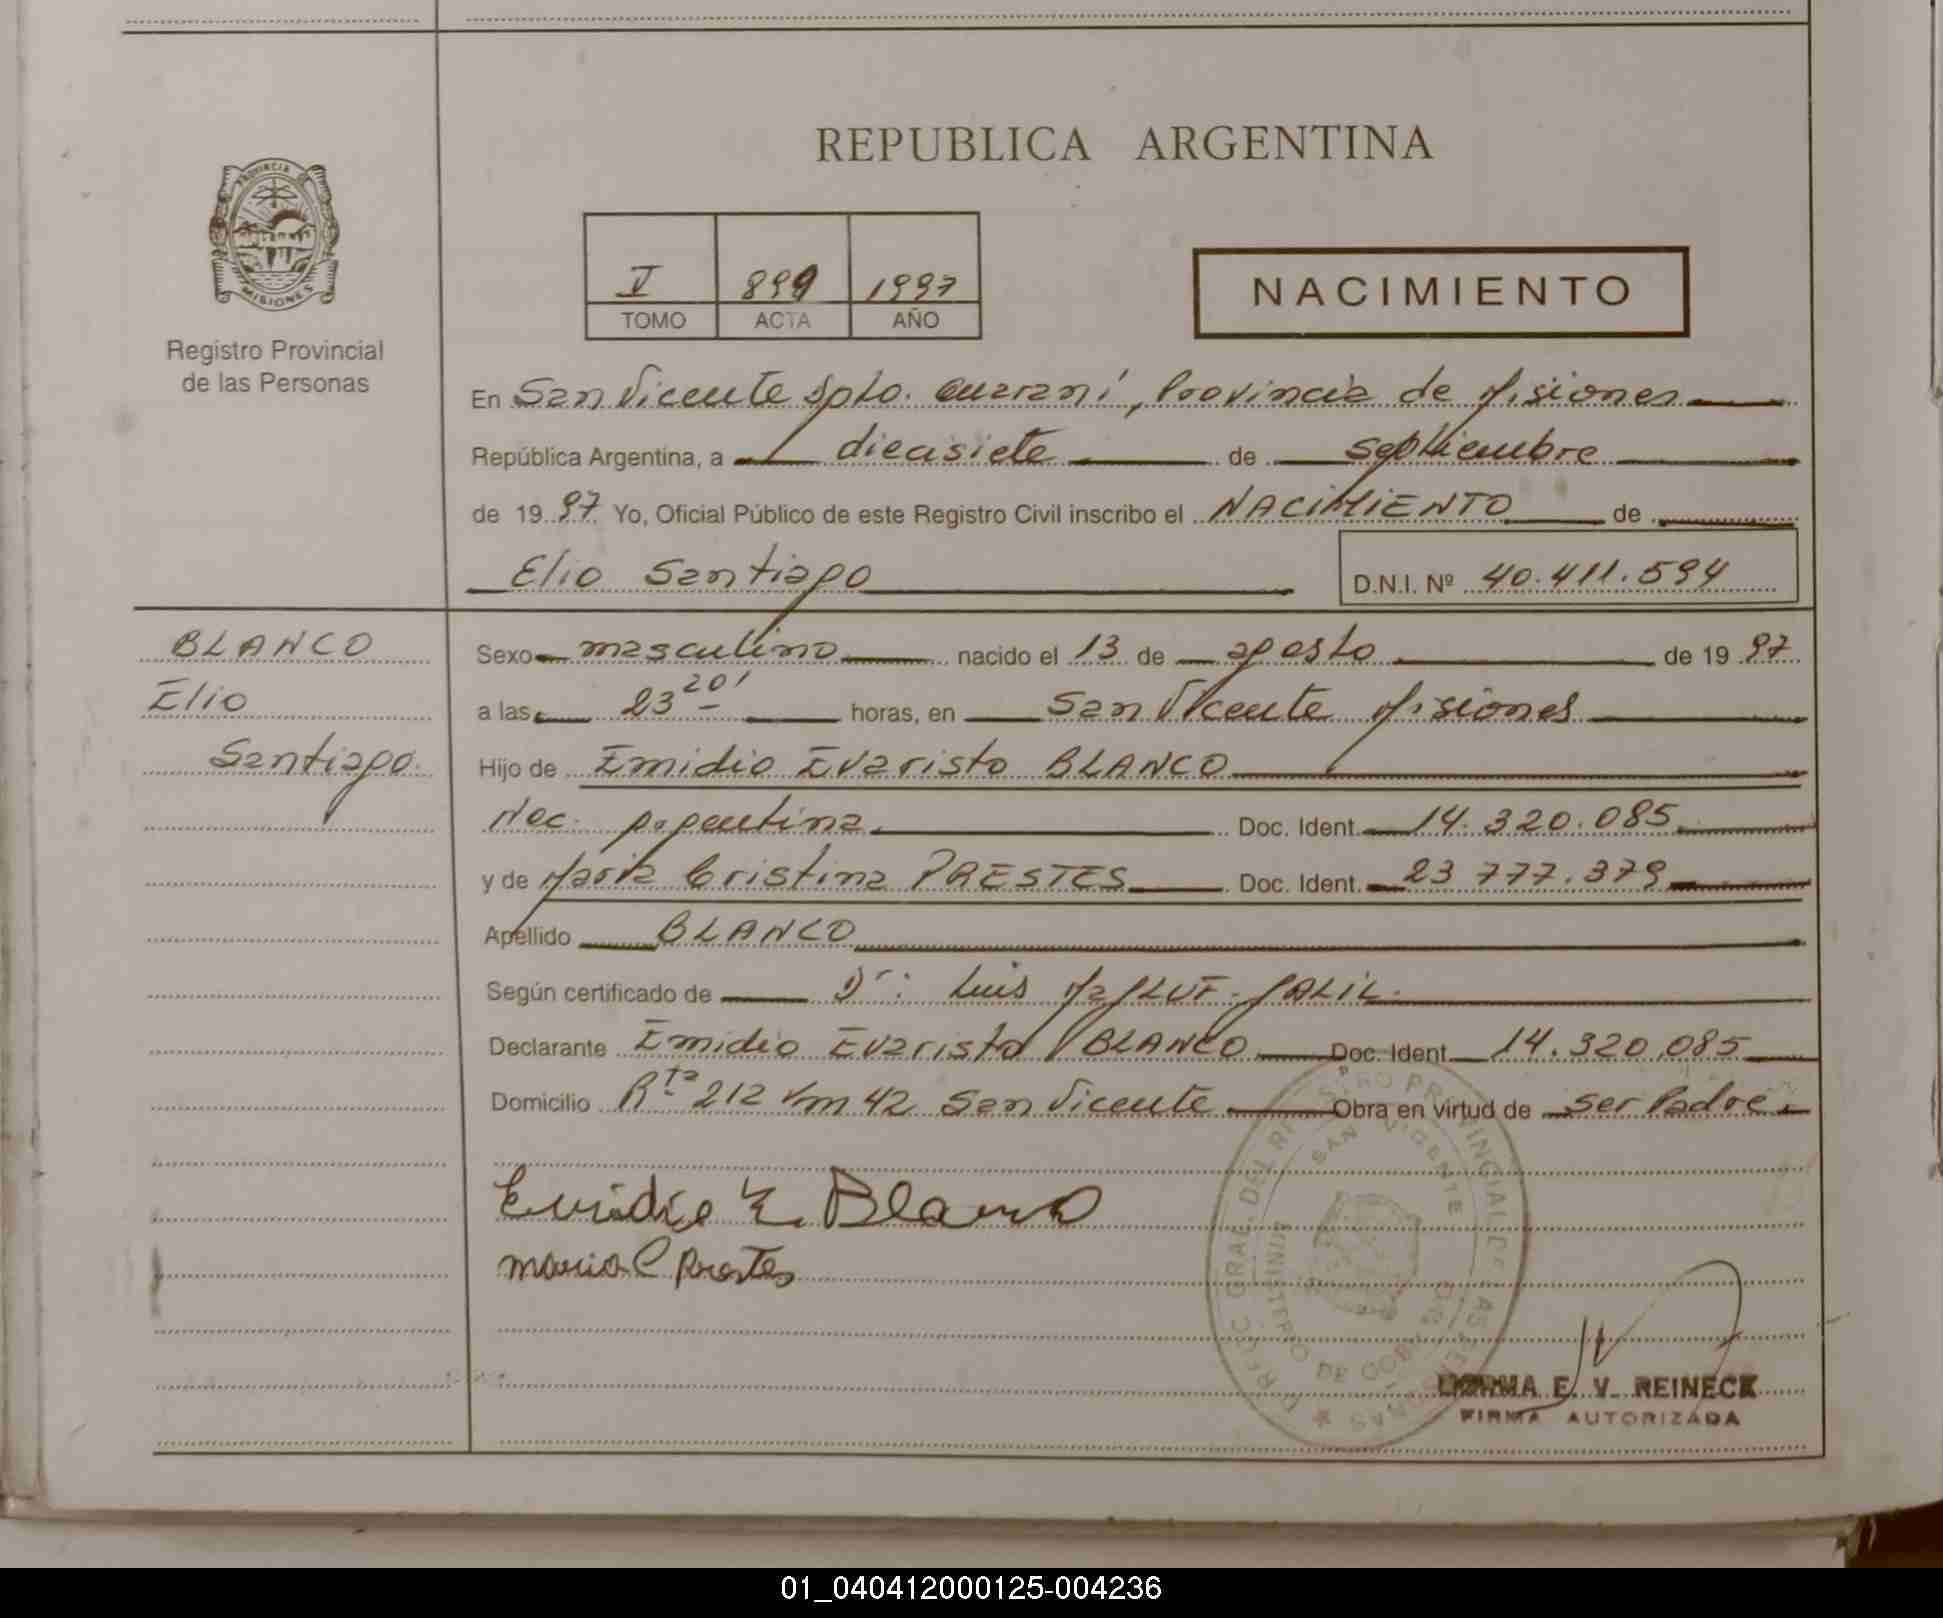 REPUBLICA ARGENTINA
PROVINCIA DE MISIONES
Registro Provincial
de las Personas
V 899 1997
TOMO ACTA AÑO
NACIMIENTO
En San Vicente Dpto. Guaraní, Provincia de Misiones
República Argentina, a diecisiete de septiembre
de 1997 Yo, Oficial Público de este Registro Civil inscribo el NACIMIENTO de
Elio Santiago D.N.I. Nº 40.411.594
BLANCO
Elio
Santiago.
Sexo masculino nacido el 13 de agosto de 1997
a las 23 20' horas, en San Vicente Misiones
Hijo de Emidio Evaristo BLANCO
Nac. Argentina Doc. Ident. 14.320.085
y de Maria Cristina PRESTES Doc. Ident. 23 777.379
Apellido BLANCO
Según certificado de Dr: Luis
Declarante Emidio Evaristo BLANCO Doc. Ident. 14.320.085
Domicilio Rta 212 km 42 San Vicente Obra en virtud de ser Padre.
Emidio E. Blanco
Maria C Prestes
DIRECC GRAL DEL REGISTRO PROVINCIAL DE LAS PERSONAS
SAN VICENTE
MINISTERIO DE GOBIERNO
NORMA E. V. REINECK
FIRMA AUTORIZADA
01_040412000125-004236